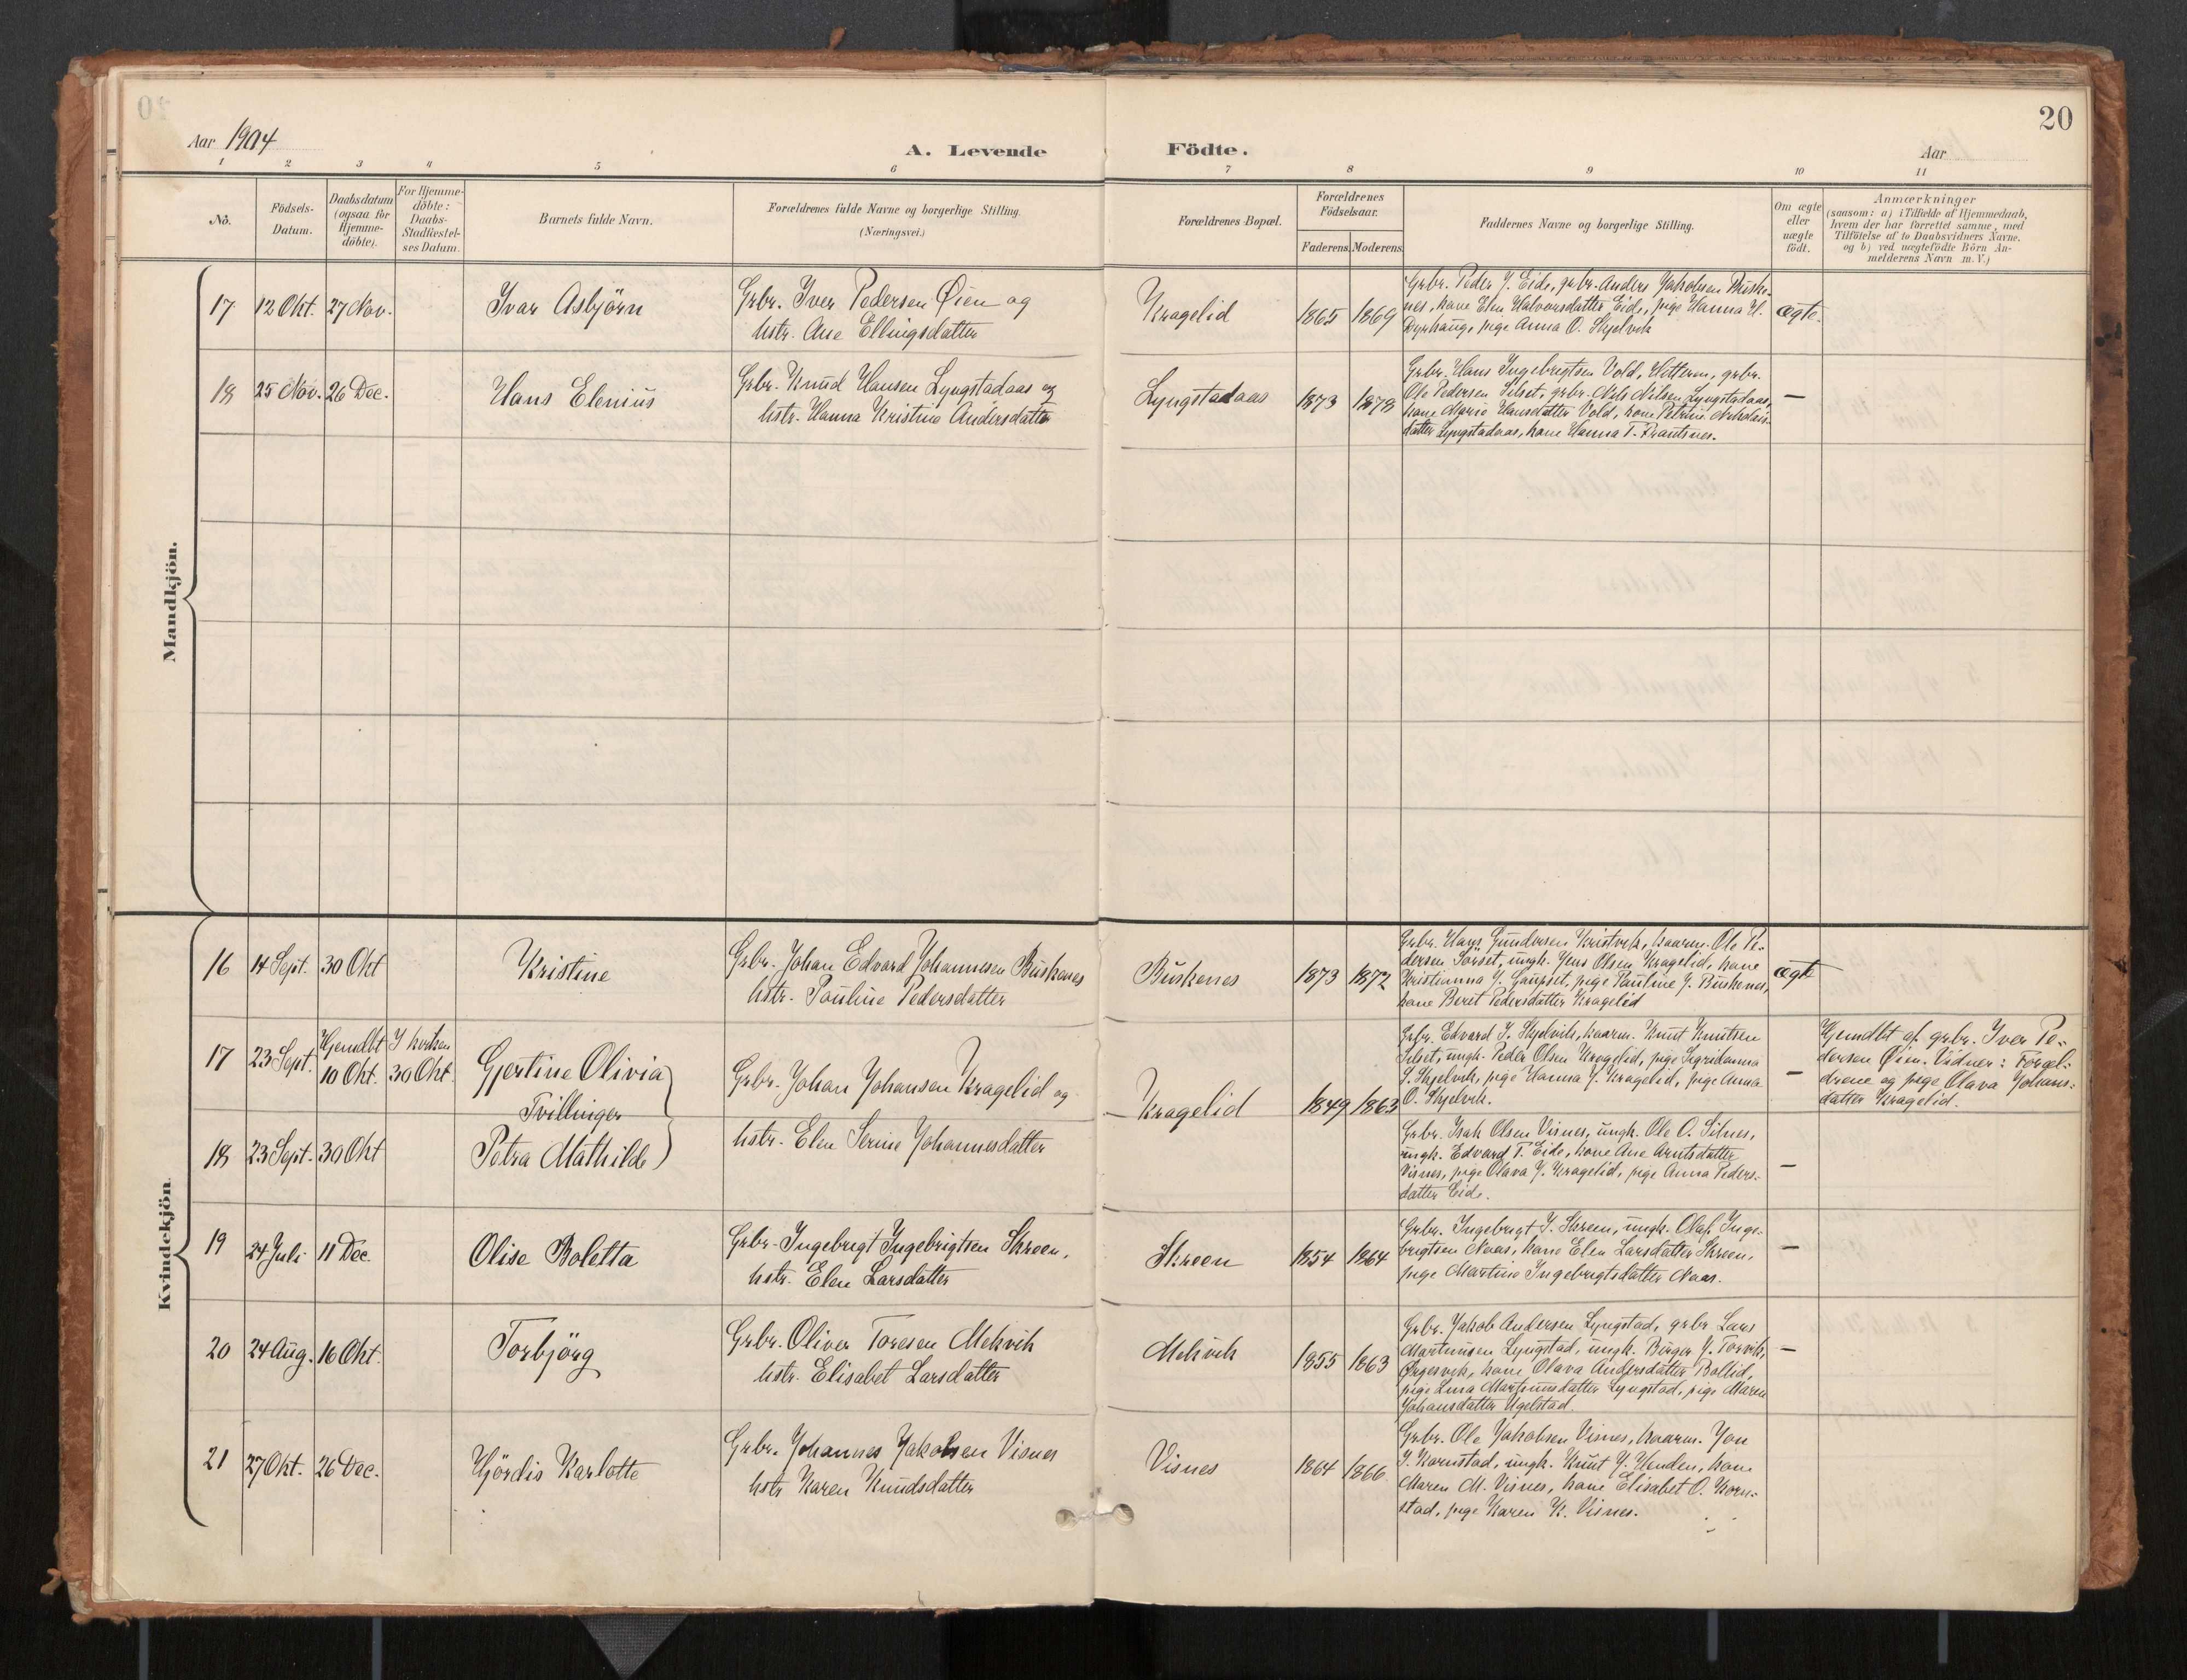 20
Aar 1904
A. Levende
Födte.
Aar
1 2 3 4 5 6 7 8 9 10 11
No.
Födsels-
Datum.
Daabsdatum
(ogsaa for
Hjemme-
döbte).
For Hjemme-
döbte:
Daabs-
Stadfæstel-
ses Datum.
Barnets fulde Navn.
Forældrenes fulde Navne og borgerlige Stilling.
(Næringsvei.)
Forældrenes Bopæl.
Forældrenes
Födselsaar.
Faderens. Moderens.
Faddernes Navne og borgerlige Stilling.
Om ægte
eller
uægte
födt.
Anmærkninger
(saasom: a) i Tilfælde af Hjemmedaab,
hvem der har forrettet samme, med
Tilföielse af to Daabsvidners Navne.
og b) ved uægtefödte Börn An-
melderens Navn m. V.)
Mandkjön.
17 12 Okt. 27 Nov. Ivar Asbjörn
Grbr. Iver Pedersen Øien og
hstr. Ane Ellingsdatter
Kragelid 1865 1869
Grbr. Peder J. Eide, grbr. Anders Jakobsen
nes, kone Elen Halvorsdatter Eide, pige Hanna H.
Dyrhaug, pige Anna O. Skjelvik
ægte.
18 25 Nov. 26 Dec. Hans Elenius
Grbr. Knud Hansen Lyngstadaas og
hstr. Hanna Kristine Andersdatter
Lyngstadaas 1873 1878
Grbr. Hans Ingebrigtsen Vold, Hitteren, grbr.
Ole Pedersen Silset, grbr. Nils Nilsen Lyngstadaas,
kone Marie Hansdatter Vold, kone Petrine Nikolais-
datter Lyngstadaas, kone Hanna T.
—
Kvindekjön.
16 14 Sept. 30 Okt Kristine
Grbr. Johan Edvard Johannesen Buskenes
hstr. Pauline Pedersdatter
Buskenes 1873 1872
Grbr. Hans Gundersen Kristvik, kaarm. Ole Pe-
dersen Sörset, ungk. Jens Olsen Kragelid, kone
Kristianna J. Gaupset, pige Pauline J. Buskenes,
kone Beret Pedersdatter Kragelid
ægte
17 23 Sept. Hjemdbt 10 Okt. I kirken 30 Okt. Gjertine Olivia
Tvillinger
Grbr. Johan Johansen Kragelid og
hstr. Elen Serine Johannesdatter
Kragelid 1849 1863
Grbr. Edvard I. Skjelvik, kaarm. Knut Knutsen
Silset, ungk. Peder Olsen Kragelid, pige Sigridanna
S. Skjelvik, pige Hanna J. Kragelid, pige Anna
O. Skjelvik.
—
Hjemdbt af grbr. Iver Pe-
dersen Øien. Vidner: Foræl-
drene og pige Olava Johans-
datter Kragelid.
18 23 Sept. 30 Okt Petra Mathilde
Grbr. Isak Olsen Visnes, ungk. Ole O. Silnes,
ungk. Edvard T. Eide, kone Ane Arntsdatter
Visnes, pige Olava J. Kragelid, pige Anna Peders-
datter Eide.
—
19 24 Juli 11 Dec. Olise Boletta
Grbr. Ingebrigt Ingebrigtsen Skreen,
hstr. Elen Larsdatter
Skreen 1854 1864
Grbr. Ingebrigt I. Skreen, ungk. Olaf Inge-
brigtsen Naas, kone Elen Larsdatter Skreen,
pige Martine Ingebrigtsdatter Naas.
—
20 24 Aug. 16 Okt. Torbjörg
Grbr. Oliver Toresen Mekvik
hstr. Elisabet Larsdatter
Mekvik 1855 1863
Grbr. Jakob Andersen Lyngstad, grbr Lars
Martinusen Lyngstad, ungk. Birger J. Torvik,
Ørgesvik, kone Olava Andersdatter Bollid,
pige Lina Martinusdatter Lyngstad, pige Maren
Johansdatter Ugelstad.
—
21 27 Okt. 26 Dec. Hjördis Karlotte
Grbr. Johannes Jakobsen Visnes
hstr Karen Knudsdatter
Visnes 1864 1866
Grbr. Ole Jakobsen Visnes, kaarm. Jon
I. Kornstad, ungk. Knut J. Henden, kone
Maren M. Visnes, kone Elisabet O. Korn-
stad, pige Karen K. Visnes.